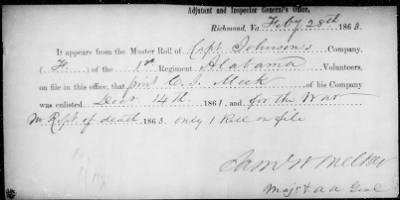 Adjutant and Inspector General's Office,
Richmond, Va. Feby 28th 1863.
It appears from the Muster Roll of Capt Johnson's Company,
( F. ) of the 1st Regiment Alabama Volunteers,
on file in this office, that C. J. Meek of his Company
was enlisted Decr 14th 1861, and for the War
no Rept. of death 1863. only 1 Roll on file
Maj & A A Genl